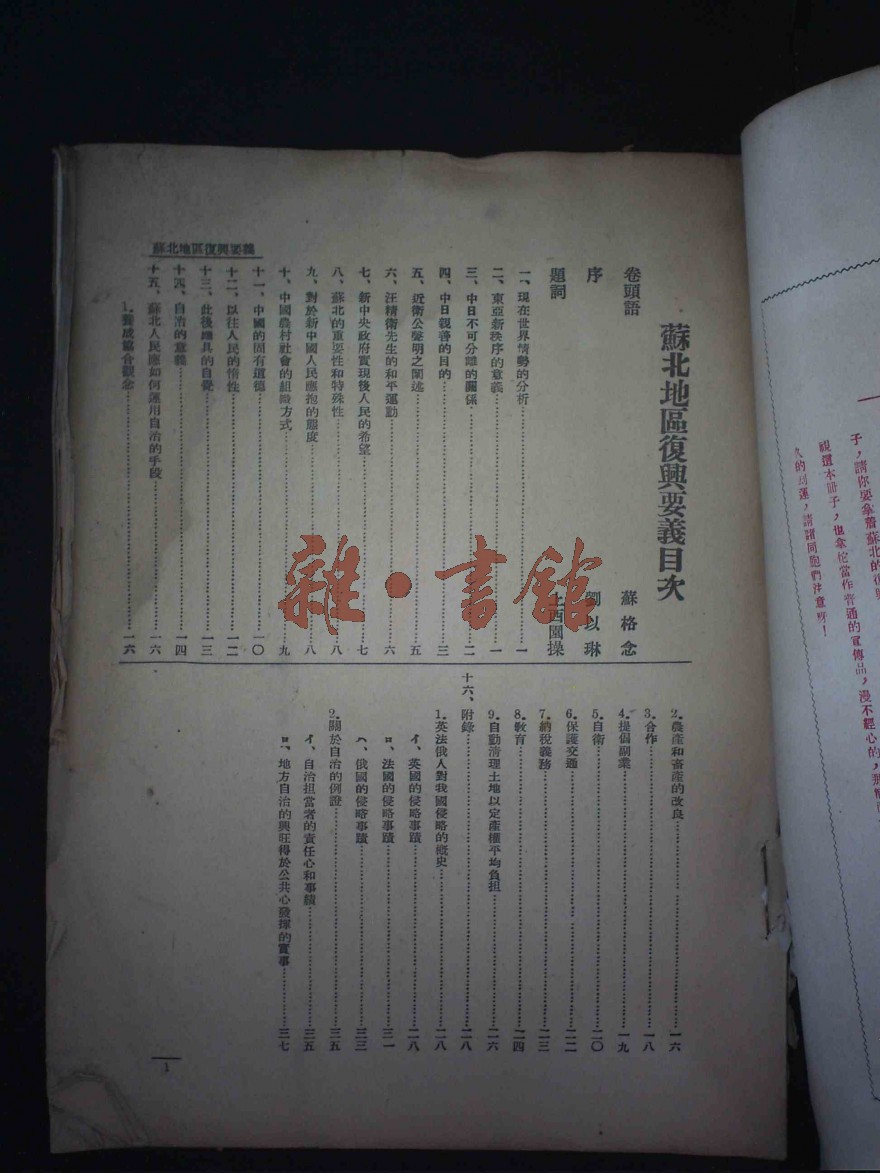 子，請你要拿着蘇北的復興
視這本冊子，也拿它當作普通的宣傳品，漫不經心的，
的國運，請諸同胞們注意呀！
蘇北地區復興要義目次
卷頭語 蘇格念
序 劉以琳
題詞 上西園操
一、現在世界情勢的分析……一
二、東亞新秩序的意義……一
三、中日不可分離的關係……二
四、中日親善的目的……三
五、近衛公聲明之闡述……五
六、汪精衛先生的和平運動……六
七、新中央政府實現後人民的希望……七
八、蘇北的重要性和特殊性……八
九、對於新中國人民應抱的態度……八
十、中國農村社會的組織方式……九
十一、中國的固有道德……一〇
十二、以往人民的惰性……一二
十三、此後應具的自覺……一三
十四、自治的意義……一四
十五、蘇北人民應如何運用自治的手段……一六
1.養成協合觀念……一六
2.農產和畜產的改良……一六
3.合作……一八
4.提倡副業……一九
5.自衛……二〇
6.保護交通……二二
7.納稅義務……二三
8.敎育……二四
9.自動清理土地以定產權平均負担……二六
十六、附錄……二八
1.英法俄人對我國侵略的概史……二八
イ、英國的侵略事蹟……二八
ロ、法國的侵略事蹟……三一
ハ、俄國的侵略事蹟……三三
2.關於自治的例證……三五
イ、自治担當者的責任心和事績……三五
ロ、地方自治的興旺得於公共心發揮的實事……三七
蘇北地區復興要義
1
雜·書館